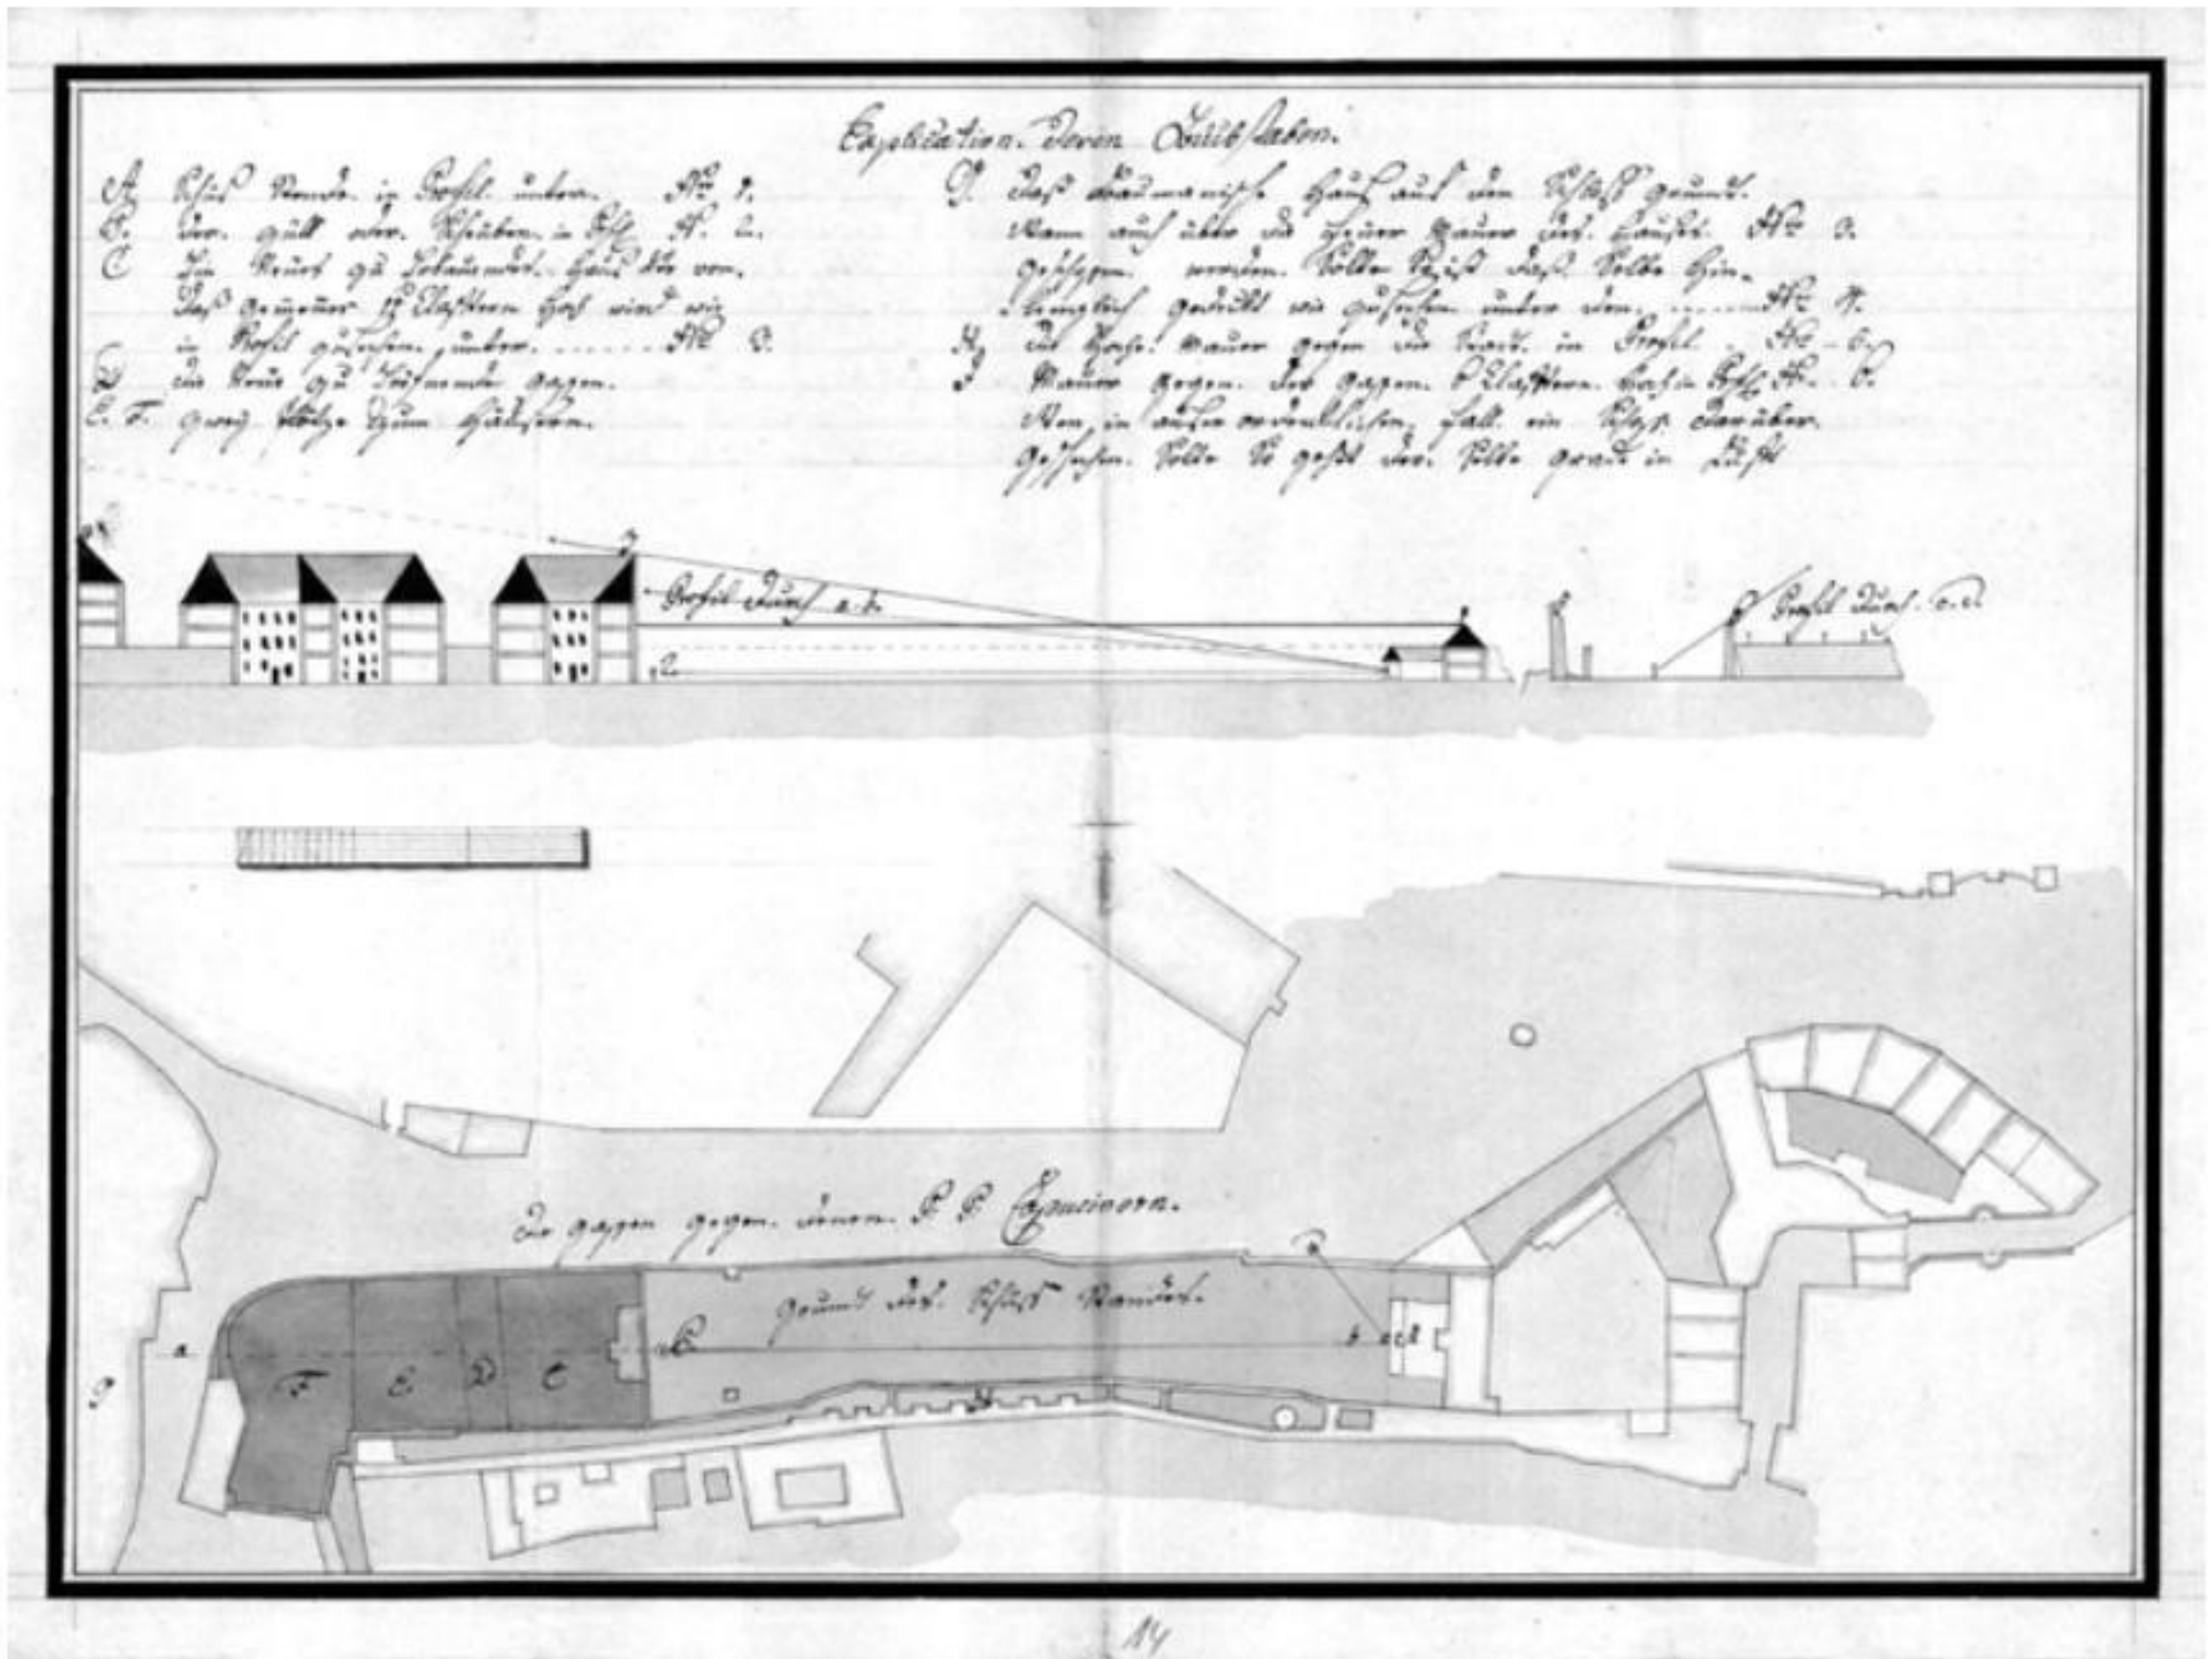 Explication. Deren Buchstaben.
A Schuß Stande. in Profil. unten. No 1.
B. der. Züll oder. Scheuben. in Profl No. 2.
C Ein Neues zu Erbauendes. Haus die von.
Daß gemeuer 12 Claftern hoch wird wie
in Profil zusehen. unter. ...... No 3.
D die Neue zu gassen.
E. F. zwey Plätze zum Häusern.
G. Daß Haus auf den Schloß grundt.
Wann auch über die Mauer des. Hauses. No 3.
geschossen werden. Solte So ist daß Selbe hin-
länglich gedeckt wie zusehen unter den. ...... No 4.
H. die Hoche. Mauer gegen die Stadt. in Profil. No - 5.
J Mauer gegen. der gassen. Claftern. hoch in Profl No. 6.
Wen. in außer ordentlichen. fall. ein Schus darüber.
geschehen. Solte So gehet der. Selbe grade in Luft
3
Profil Durch a. b.
2.
Profil Durch. c. d.
Die gassen gegen. denen. P. P. Capucinern.
grund des. Schuß Standes.
a
F E. D C
B
b
G
H
14